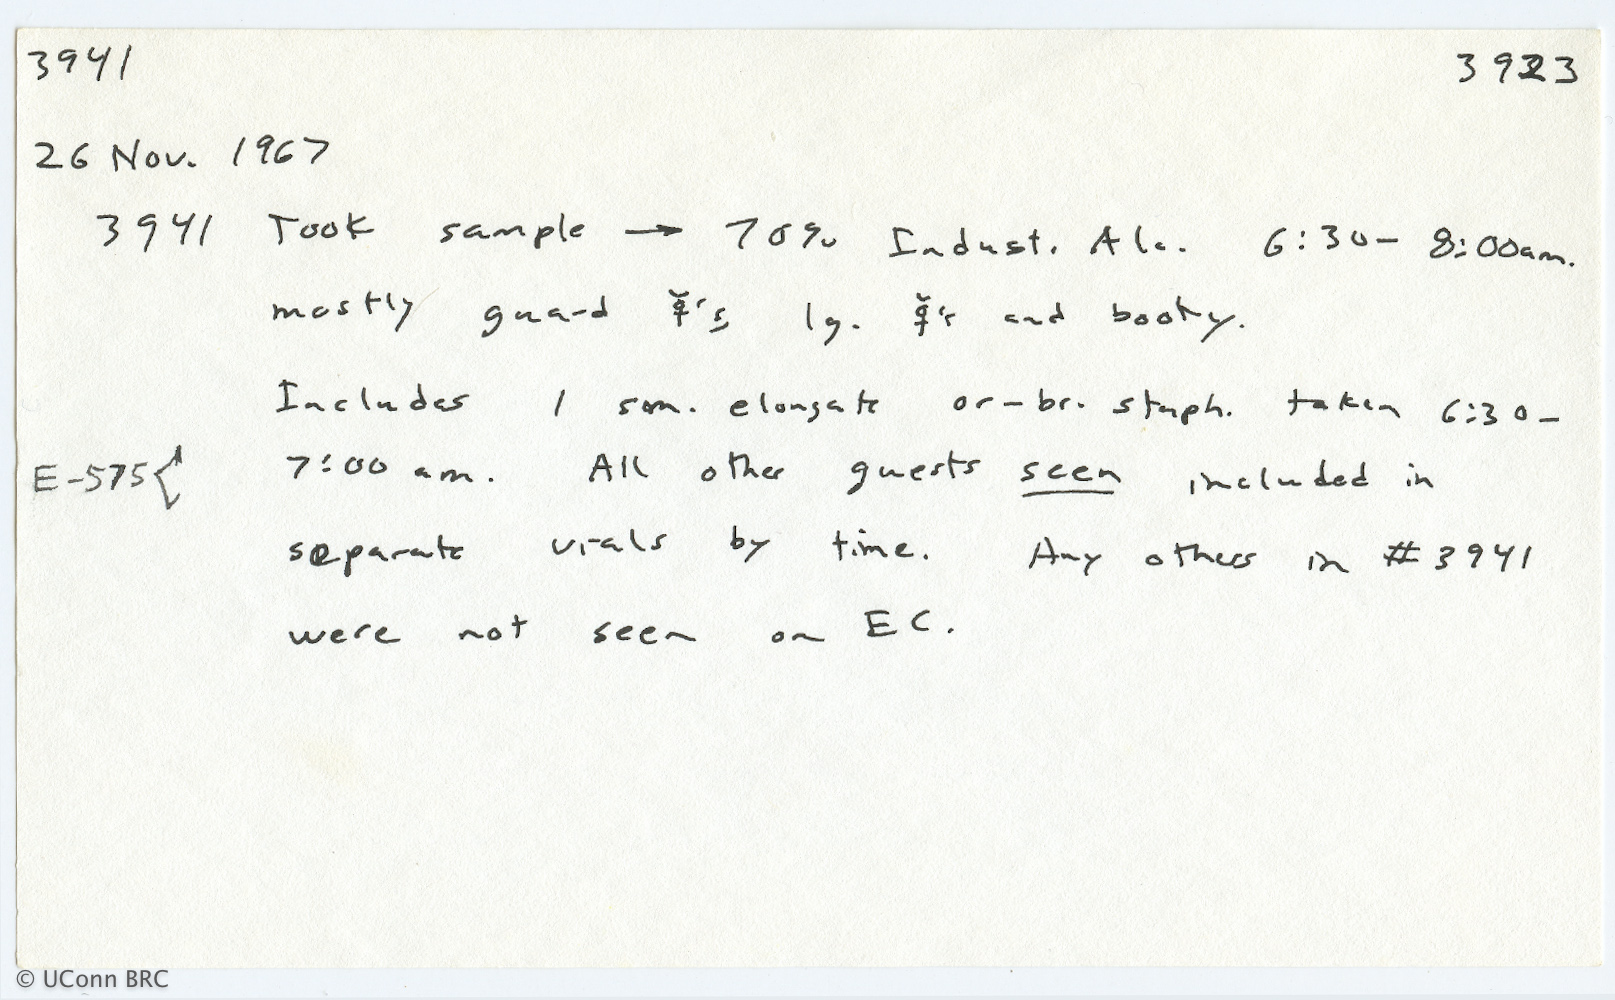 3941 3923
26 Nov. 1967
3941 Took sample → 70% Indust. Alc. 6:30– 8:00am.
mostly guard ☿'s, lg. ☿'s and booty.
Includes 1 sm. elongate or-br. staph. taken 6:30–
E-575{ 7:00 am. All other guests seen included in
separate vials by time. Any others in #3941
were not seen on EC.
© UConn BRC